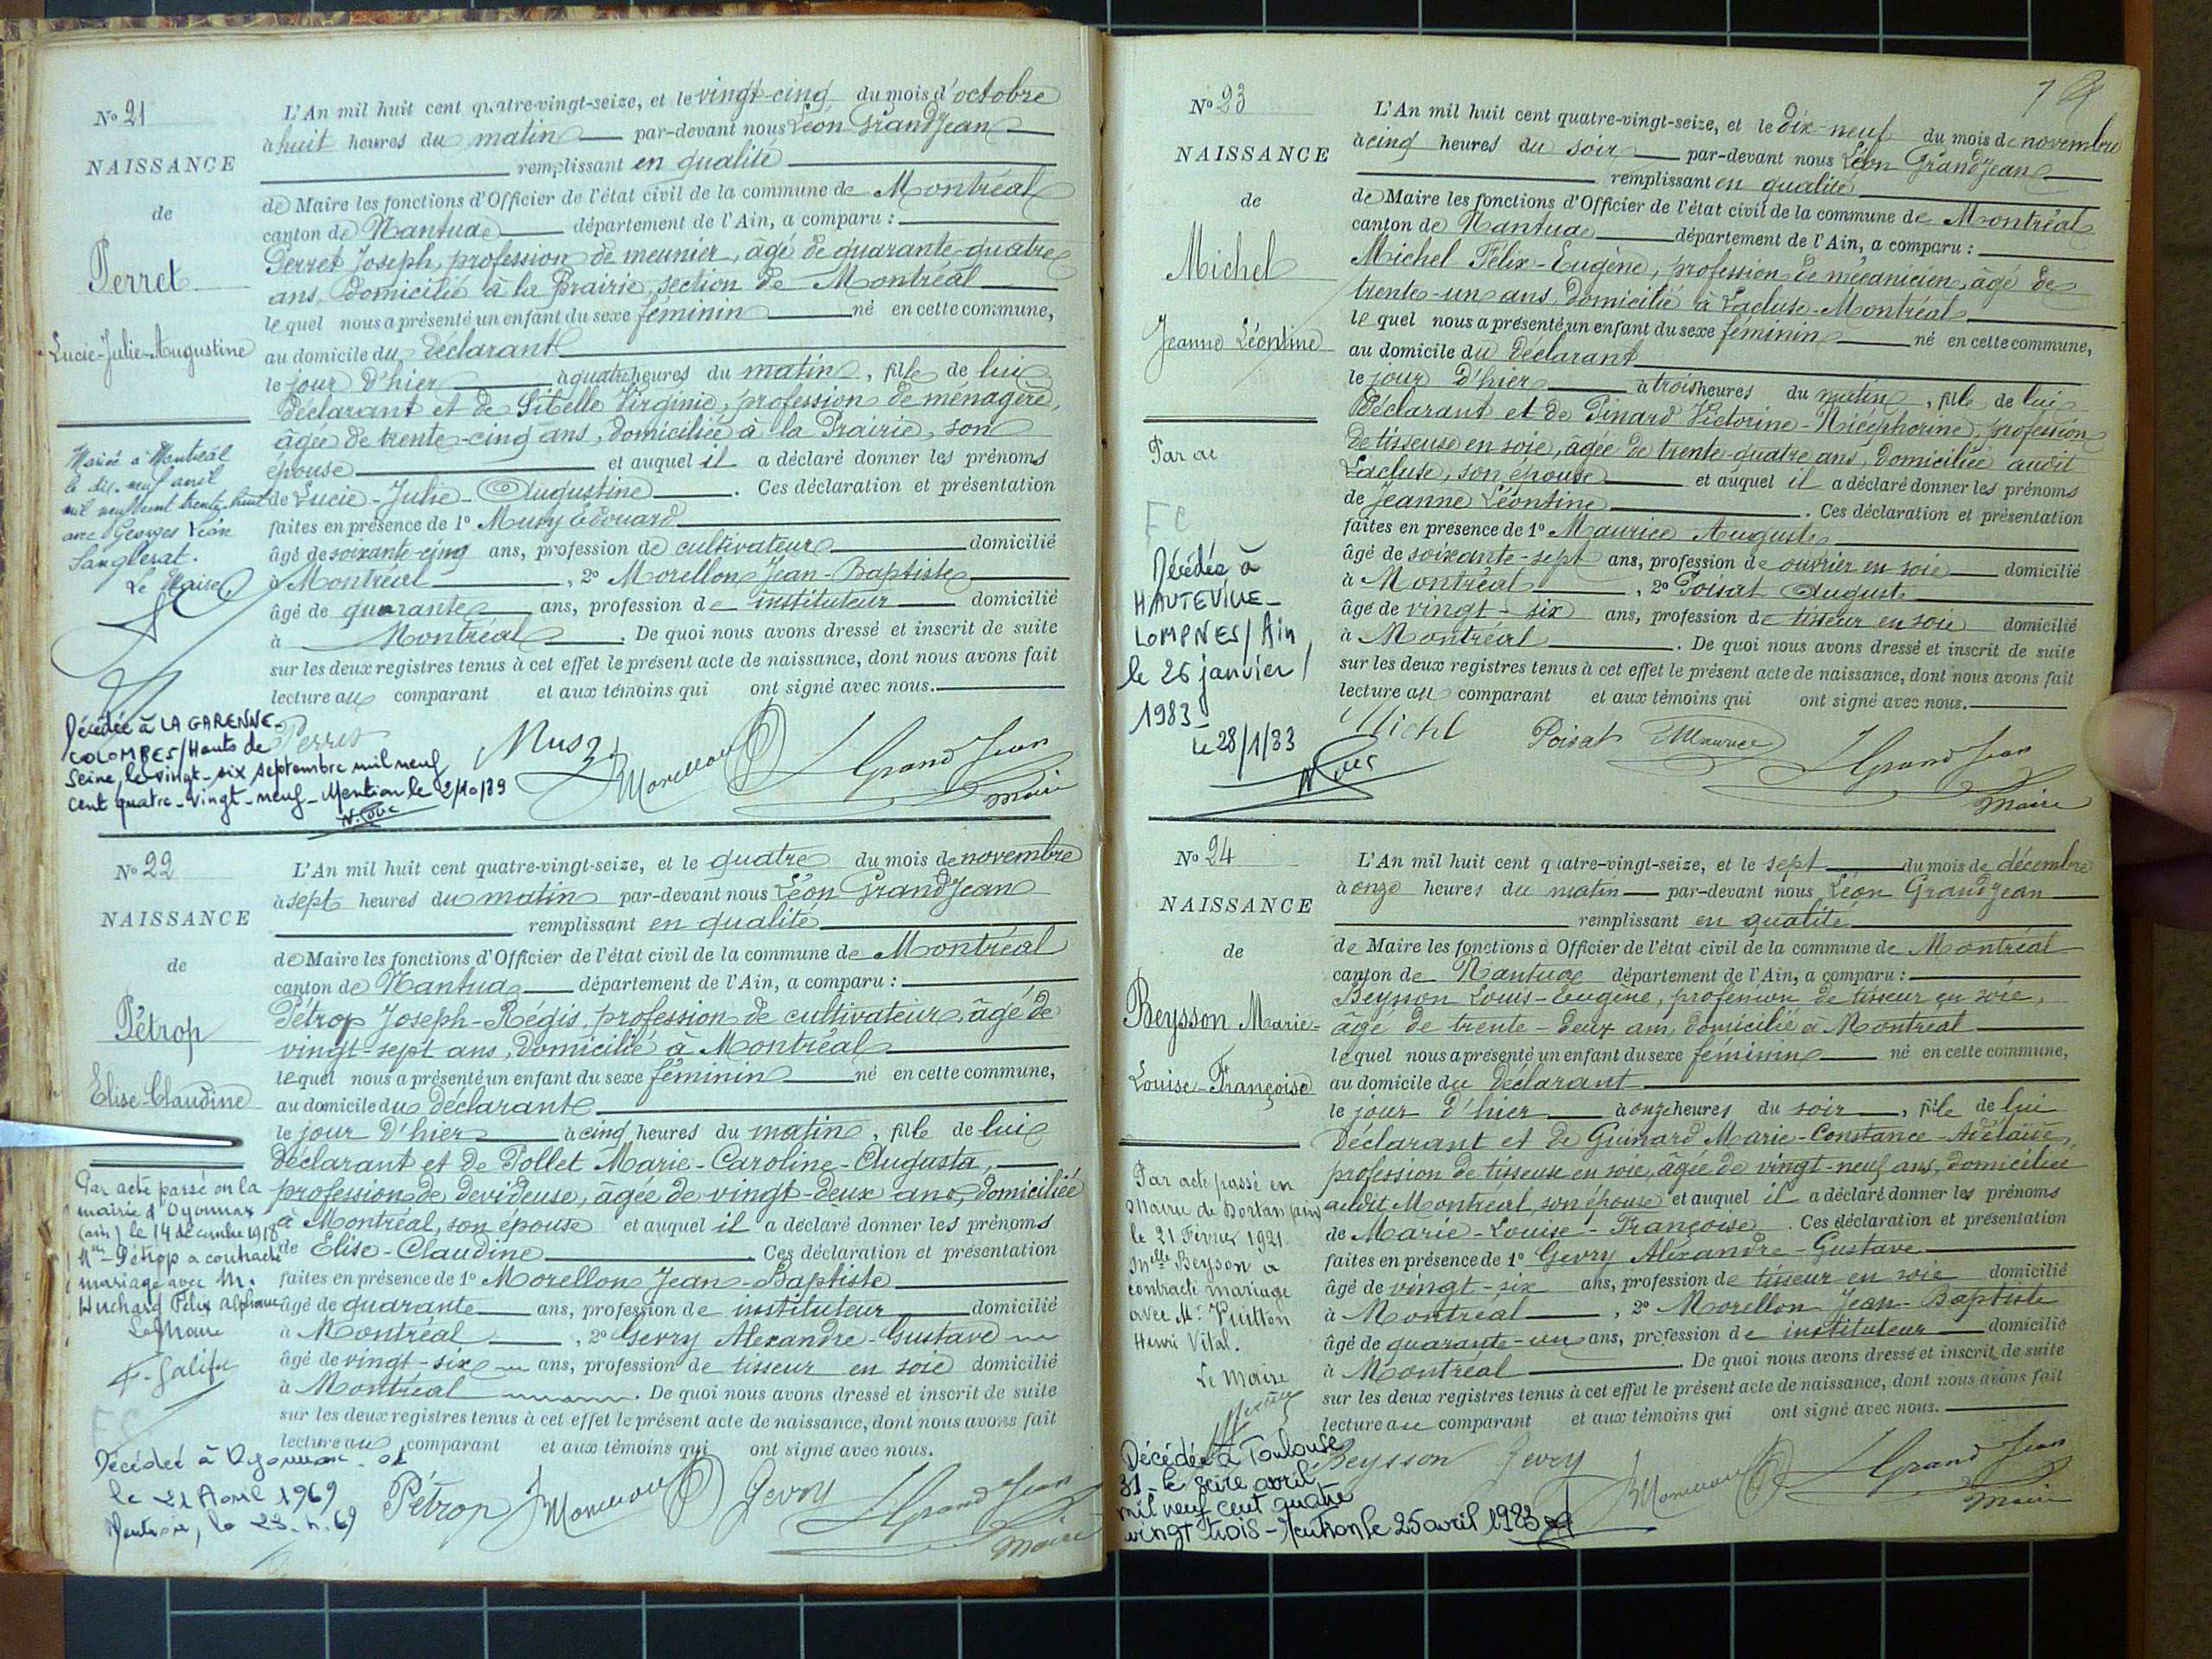 No 21
NAISSANCE
de
Perret
Lucie-Julie-Augustine
L'An mil huit cent quatre-vingt-seize, et le vingt-cinq du mois d'octobre
à huit heures du matin par-devant nous Léon Grandjean
remplissant en qualité
de Maire les fonctions d'Officier de l'état civil de la commune de Montréal
canton de Nantua département de l'Ain, a comparu :
Perret Joseph, profession de meunier, âgé de quarante-quatre
ans, domicilié à la Prairie, section de Montréal
lequel nous a présenté un enfant du sexe féminin né en cette commune,
au domicile du déclarant
le jour d'hier à quatre heures du matin, fille de lui
déclarant et de Sibelle Virginie, profession de ménagère,
âgée de trente-cinq ans, domiciliée à la Prairie, son
épouse et auquel il a déclaré donner les prénoms
de Lucie-Julie-Augustine. Ces déclaration et présentation
faites en présence de 1º Musy Édouard
âgé de soixante-cinq ans, profession de cultivateur domicilié
à Montréal, 2º Morellon Jean-Baptiste
âgé de quarante ans, profession de instituteur domicilié
à Montréal. De quoi nous avons dressé et inscrit de suite
sur les deux registres tenus à cet effet le présent acte de naissance, dont nous avons fait
lecture au comparant et aux témoins qui ont signé avec nous.
Mariée à Montréal
le dix-neuf avril
mil neuf cent trente-huit
avec Georges Léon
Sanglerat.
Le Maire
Décédée à LA GARENNE-
COLOMBES/Hauts de
Seine, le vingt-six septembre mil neuf
cent quatre-vingt-neuf - Mention le 2/10/89
Perret Musy Morellon Grandjean
Maire
No 22
NAISSANCE
de
Pétrop
Elise-Claudine
L'An mil huit cent quatre-vingt-seize, et le quatre du mois de novembre
à sept heures du matin par-devant nous Léon Grandjean
remplissant en qualité
de Maire les fonctions d'Officier de l'état civil de la commune de Montréal
canton de Nantua département de l'Ain, a comparu :
Pétrop Joseph-Régis, profession de cultivateur, âgé de
vingt-sept ans, domicilié à Montréal
lequel nous a présenté un enfant du sexe féminin né en cette commune,
au domicile du déclarant
le jour d'hier à cinq heures du matin, fille de lui
déclarant et de Pollet Marie-Caroline-Augusta,
profession de devideuse, âgée de vingt-deux ans, domiciliée
à Montréal, son épouse et auquel il a déclaré donner les prénoms
de Elise-Claudine. Ces déclaration et présentation
faites en présence de 1º Morellon Jean-Baptiste
âgé de quarante ans, profession de instituteur domicilié
à Montréal, 2º Gevry Alexandre-Gustave
âgé de vingt-six ans, profession de tisseur en soie domicilié
à Montréal. De quoi nous avons dressé et inscrit de suite
sur les deux registres tenus à cet effet le présent acte de naissance, dont nous avons fait
lecture au comparant et aux témoins qui ont signé avec nous.
Par acte passé en la
mairie d'Oyonnax
(ain) le 14 décembre 1918
Mlle Pétrop a contracté
mariage avec M.
Huchard Félix Alphonse
Le Maire
Décédée à Oyonnax
le 21 Avril 1969
Pétrop Morellon Gevry Grandjean
Maire
No 23
NAISSANCE
de
Michel
Jeanne Léontine
L'An mil huit cent quatre-vingt-seize, et le dix-neuf du mois de novembre
à cinq heures du soir par-devant nous Léon Grandjean
remplissant en qualité
de Maire les fonctions d'Officier de l'état civil de la commune de Montréal
canton de Nantua département de l'Ain, a comparu :
Michel Félix-Eugène, profession de mécanicien, âgé de
trente-un ans, domicilié à Lacluse-Montréal
lequel nous a présenté un enfant du sexe féminin né en cette commune,
au domicile du déclarant
le jour d'hier à trois heures du matin, fille de lui
déclarant et de Pinard Victorine-Nicéphorine, profession
de tisseuse en soie, âgée de trente-quatre ans, domiciliée audit
Lacluse, son épouse et auquel il a déclaré donner les prénoms
de Jeanne Léontine. Ces déclaration et présentation
faites en présence de 1º Maurice Auguste
âgé de soixante-sept ans, profession de ouvrier en soie domicilié
à Montréal, 2º Poisat Auguste
âgé de vingt-six ans, profession de tisseur en soie domicilié
à Montréal. De quoi nous avons dressé et inscrit de suite
sur les deux registres tenus à cet effet le présent acte de naissance, dont nous avons fait
lecture au comparant et aux témoins qui ont signé avec nous.
Par ac
FC
Décédée à
HAUTEVILLE-
LOMPNES/Ain
le 26 janvier
1983
Le 28/1/83
Michel Poisat Maurice Grandjean
Maire
No 24
NAISSANCE
de
Beysson Marie-
Louise-Françoise
L'An mil huit cent quatre-vingt-seize, et le sept du mois de décembre
à onze heures du matin par-devant nous Léon Grandjean
remplissant en qualité
de Maire les fonctions d'Officier de l'état civil de la commune de Montréal
canton de Nantua département de l'Ain, a comparu :
Beysson Louis-Eugène, profession de tisseur en soie,
âgé de trente-deux ans, domicilié à Montréal
lequel nous a présenté un enfant du sexe féminin né en cette commune,
au domicile du déclarant
le jour d'hier à onze heures du soir, fille de lui
déclarant et de Guinard Marie-Constance-Adélaïde,
profession de tisseuse en soie, âgée de vingt-neuf ans, domiciliée
audit Montréal, son épouse et auquel il a déclaré donner les prénoms
de Marie-Louise-Françoise. Ces déclaration et présentation
faites en présence de 1º Gevry Alexandre-Gustave
âgé de vingt-six ans, profession de tisseur en soie domicilié
à Montréal, 2º Morellon Jean-Baptiste
âgé de quarante-un ans, profession de instituteur domicilié
à Montréal. De quoi nous avons dressé et inscrit de suite
sur les deux registres tenus à cet effet le présent acte de naissance, dont nous avons fait
lecture au comparant et aux témoins qui ont signé avec nous.
Par acte passé en
Mairie de Dortan
le 21 Février 1921
Mlle Beysson a
contracté mariage
avec Mr
Henri Vital.
Le Maire
Décédée à Toulouse
31 - le seize avril
mil neuf cent quatre
vingt trois - Mention le 25 avril 1983
Beysson Gevry Morellon Grandjean
Maire